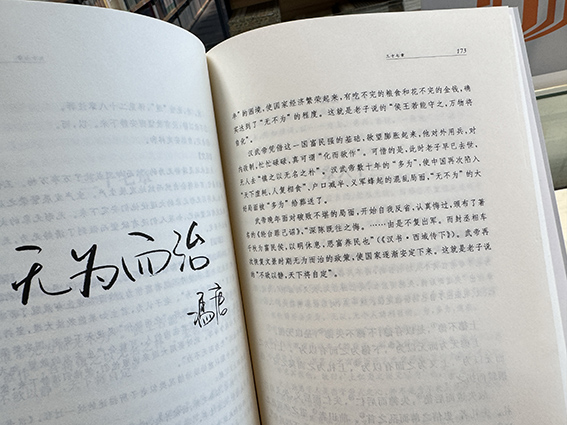 无为而治
三十七章 173
年”的困境,使国家经济繁荣起来,有吃不完的粮食和花不完的金钱,确
实达到了“无不为”的程度。这就是老子说的“侯王若能守之,万物将
自化”。
汉武帝凭借这一国富民强的基础,欲望膨胀起来,他对外用兵,对
内改制,忙忙碌碌,真可谓“化而欲作”。可惜的是,此时老子早已去世,
无人去“镇之以无名之朴”。汉武帝数十年的“多为”,使中国再次陷入
“天下虚耗,人复相食”,户口减半,义军蜂起的混乱局面,“无不为”的大
好局面被“多为”给葬送了。
武帝晚年面对破败不堪的局面,开始自我反省,认真悔过,颁布了著
名的《轮台罪己诏》,“深陈既往之悔。……由是不复出军。而封丞相车
千秋为富民侯,以明休息,思富养民也”(《汉书·西域传下》)。武帝再
次恢复文景时期无为而治的政策,使国家逐渐安定下来。这就是老子说
的“不欲以静,天下将自定”。